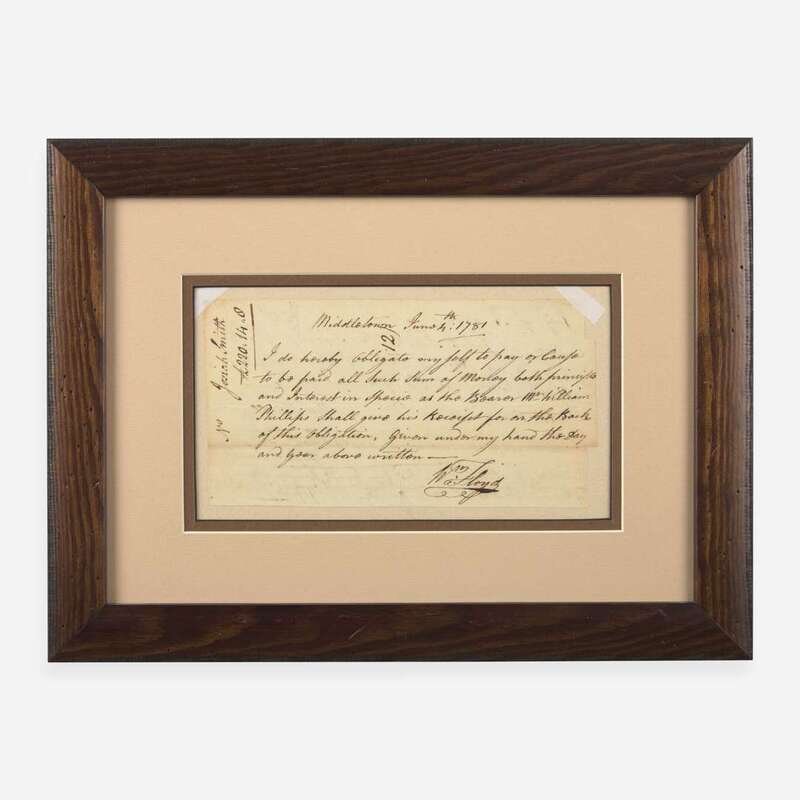 Middletown June 4th: 1781
12
I do hereby obligate my self to pay or Cause
to be paid all Such Sum of Money both principle
and Interest in Specie as the Bearer Mr William
Phillips Shall give his Receipt for on the Back
of this Obligation, Given under my hand the Day
and Year above written —
Wm Floyd
Josiah Smith
£220.14.0